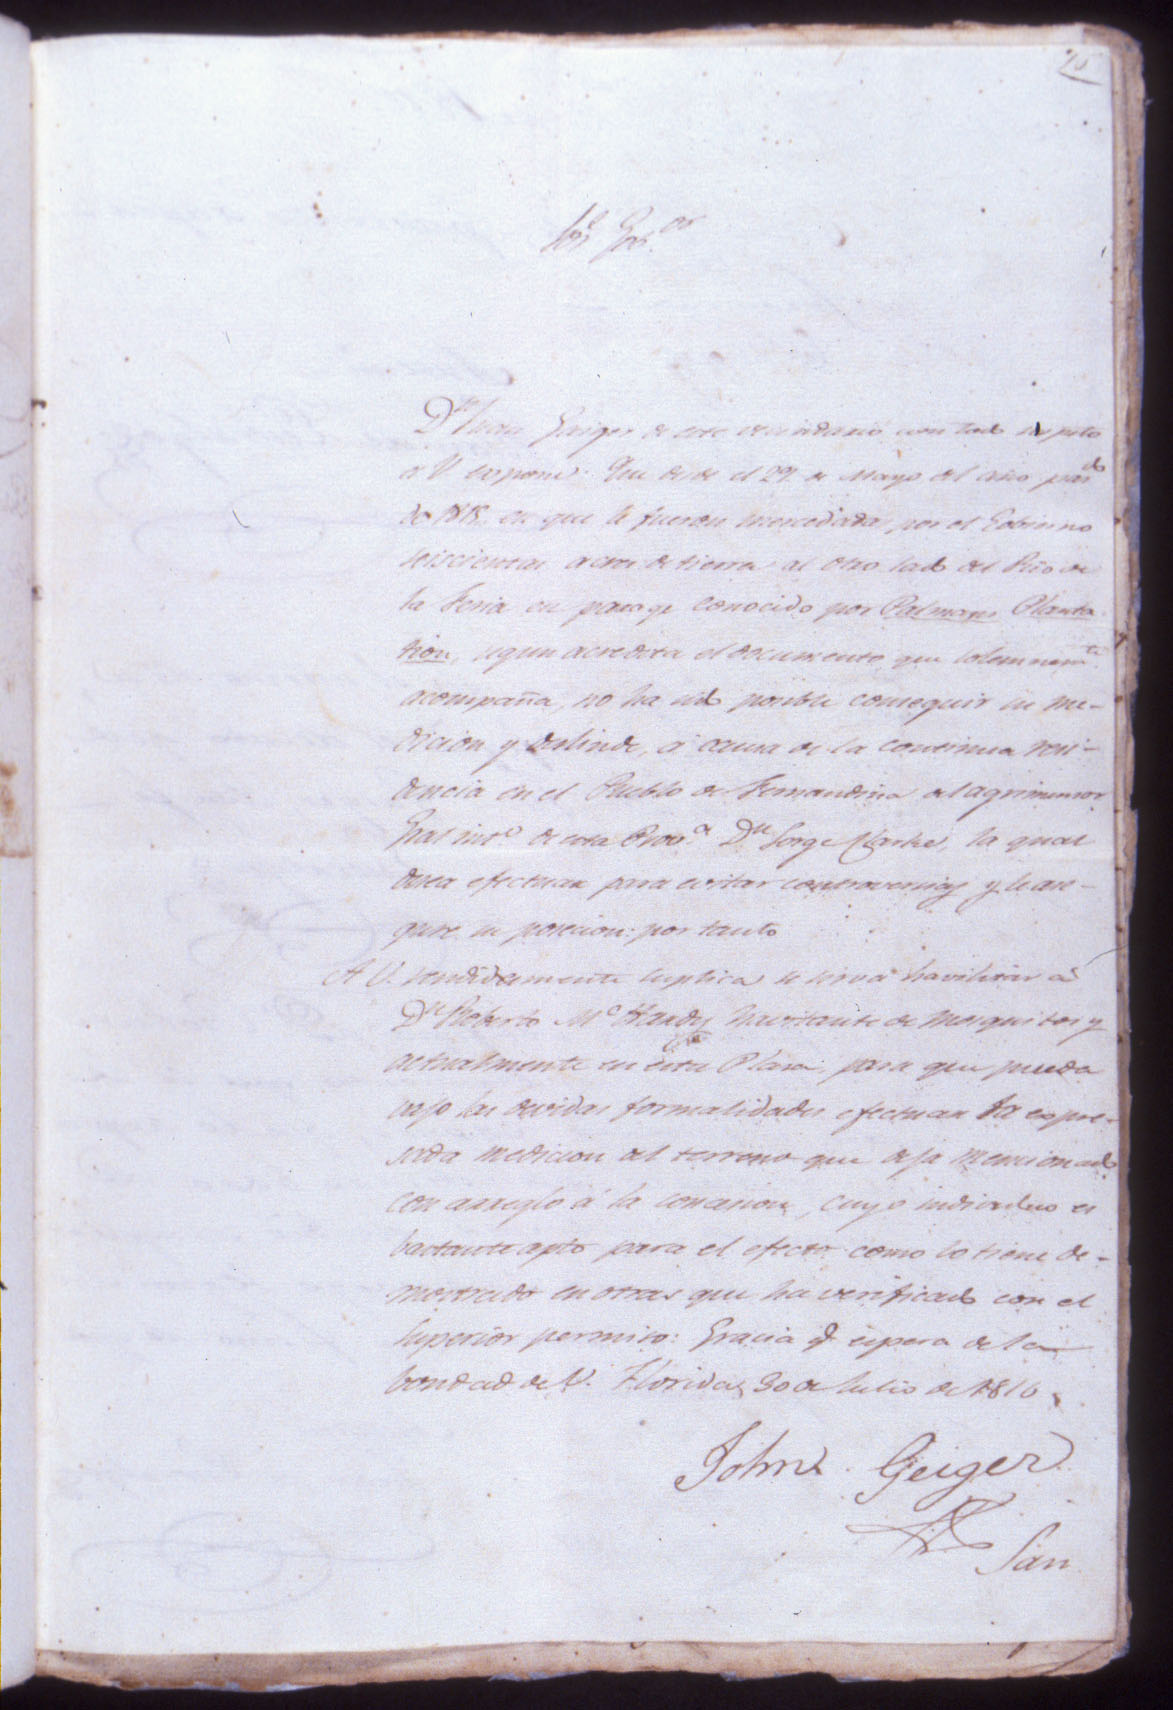 Sor Gob.or
Dn Juan Geiger de este vecindario con todo respeto
á V. expone: Que desde el 29 de Mayo del año pasdo
de 1815 en que le fueron mercedadas por el Gobierno
seiscientas acres de tierra al otro lado del Rio de
la Feria en parage conocido por Palmages Planta
tion, segun acredita el documento que solemnemte
acompaña, no ha sido posible conseguir su me-
dicion y deslinde, á causa de la continua resi-
dencia en el Pueblo de Fernandina del agrimensor
Gral. int.o de esta Prov.a Dn Jorge Clarke, la qual
desea efectuar para evitar controversias y le ase-
gure su posecion: por tanto
A V. rendidamente suplica se sirva havilitar á
Dn Roberto Mc Hardy havitante de Mosquitos y
actualmente en esta Plaza, para que pueda
vajo las devidas formalidades efectuar la expre-
sada medicion del terreno que deja mencionado
con arreglo á la concesion, cuyo individuo es
bastante apto para el efecto como lo tiene de-
mostrado en otras que ha verificado con el
superior permiso: Gracia q. espera de la
bondad de V. Florida 30 de Julio de 1816
John Geiger
San